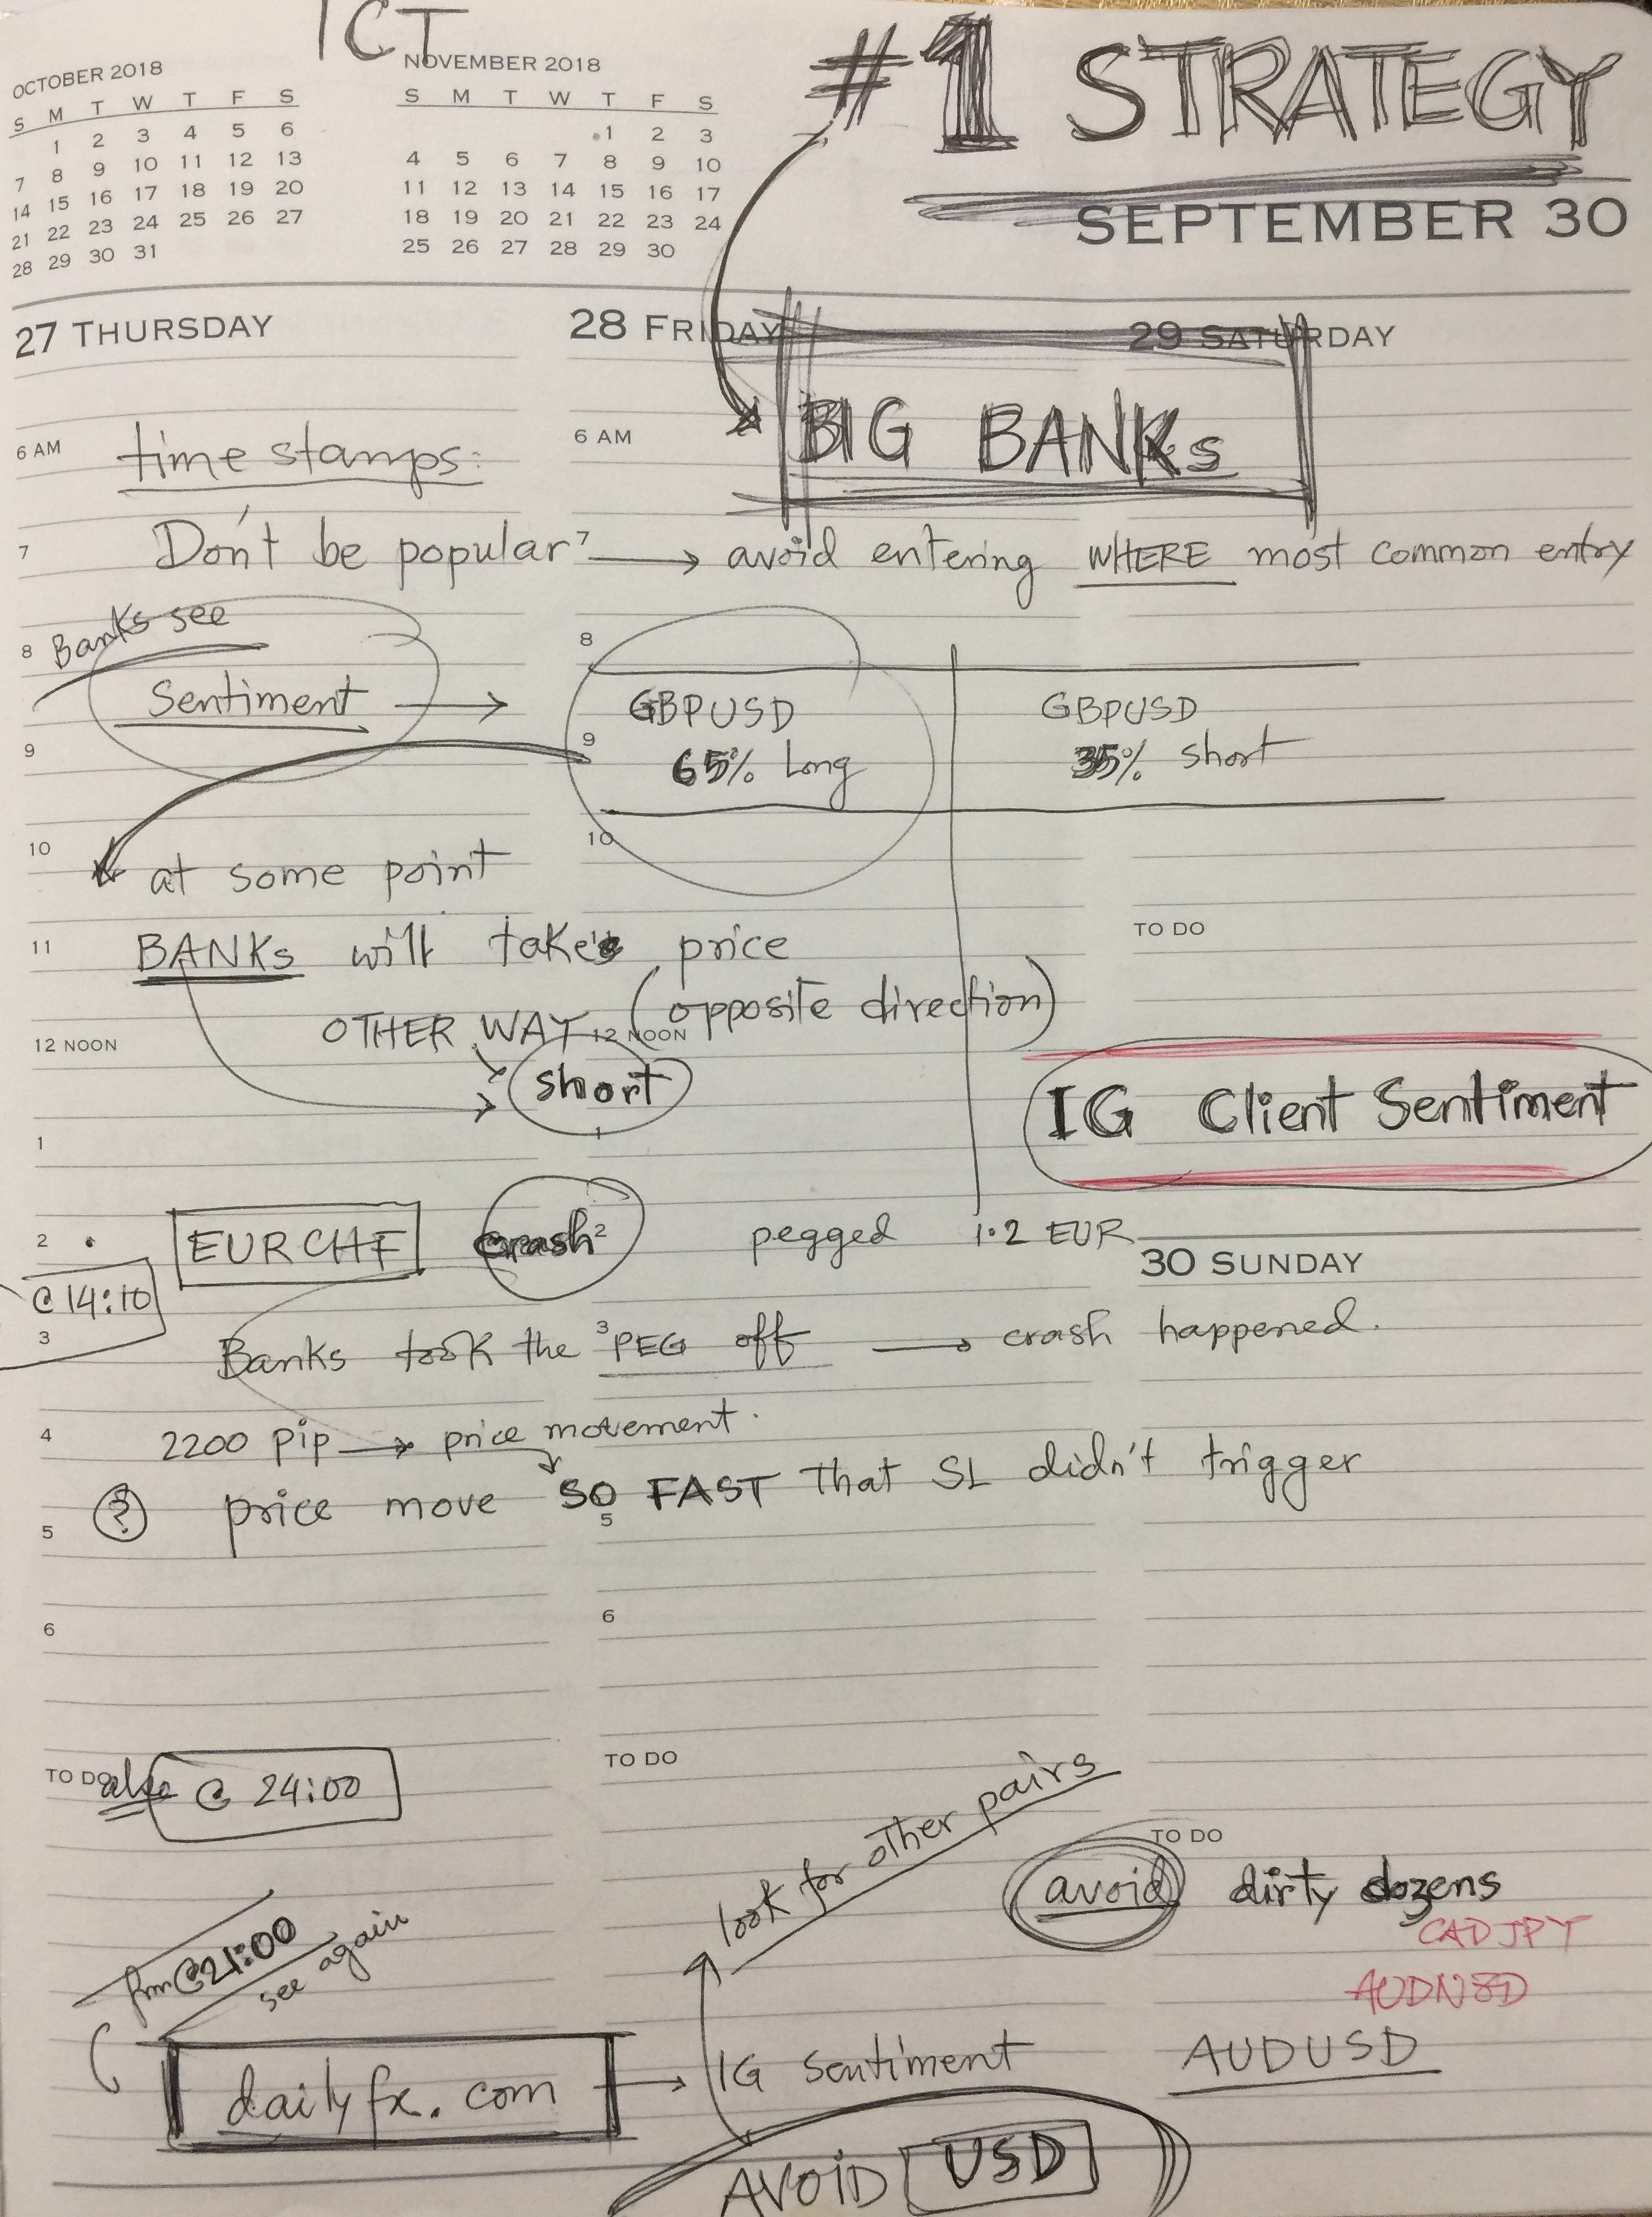 ICT
#1 STRATEGY
OCTOBER 2018
S M T W T F S
1 2 3 4 5 6
7 8 9 10 11 12 13
14 15 16 17 18 19 20
21 22 23 24 25 26 27
28 29 30 31
NOVEMBER 2018
S M T W T F S
1 2 3
4 5 6 7 8 9 10
11 12 13 14 15 16 17
18 19 20 21 22 23 24
25 26 27 28 29 30
SEPTEMBER 30
27 THURSDAY
28 FRIDAY
29 SATURDAY
BIG BANKs
6 AM
time stamps:
6 AM
7
Don't be popular
7
→ avoid entering WHERE most common entry
Banks see
8
8
Sentiment →
GBPUSD
GBPUSD
9
9
65% Long
35% short
10
10
at some point
TO DO
11
BANKs will take price
OTHER WAY (opposite direction)
12 NOON
12 NOON
short
IG Client Sentiment
1
1
2
EURCHF crash
2
pegged 1.2 EUR
30 SUNDAY
@ 14:10
3
3
Banks took the PEG off → crash happened.
4
2200 pip → price movement.
? price move SO FAST that SL didn't trigger
5
5
6
6
TO DO
also @ 24:00
TO DO
look for other pairs
TO DO
avoid dirty dozens
CADJPY
@21:00
see again
AUDNZD
dailyfx.com → IG sentiment
AUDUSD
AVOID USD